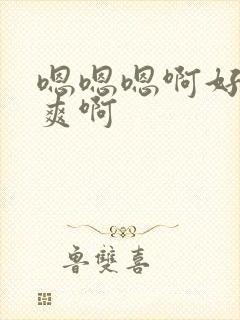 嗯嗯嗯啊好
爽啊
鲁雙喜